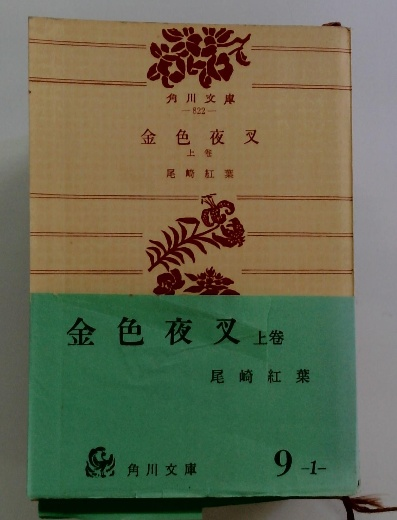 角川文庫
—822—
金色夜叉
上巻
尾崎紅葉
金色夜叉 上巻
尾崎紅葉
角川文庫 9 -1-